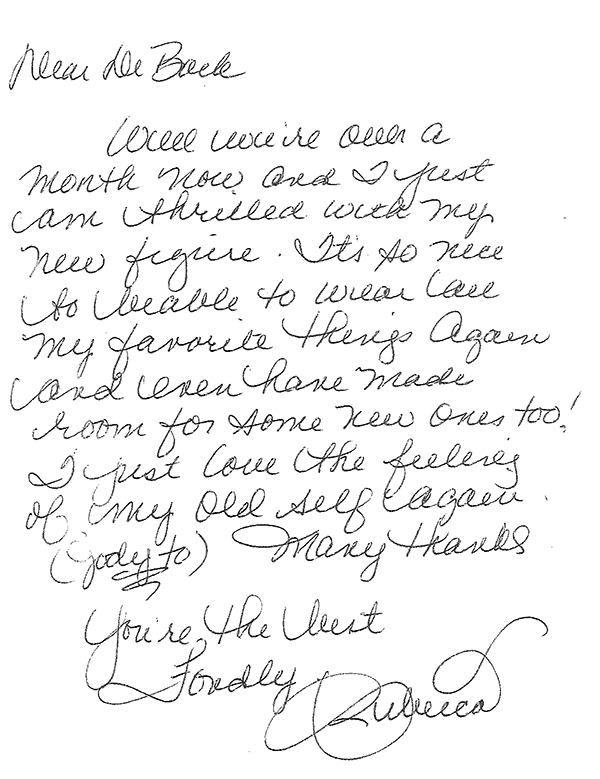 Dear Dr Back
Well we're over a
month now and I just
am thrilled with my
new figure. It's so nice
to be able to wear all
my favorite things again
and even have made
room for some new ones too!
I just love the feeling
of my old self again.
(body to) Many thanks
You're the best
Fondly
Rebecca